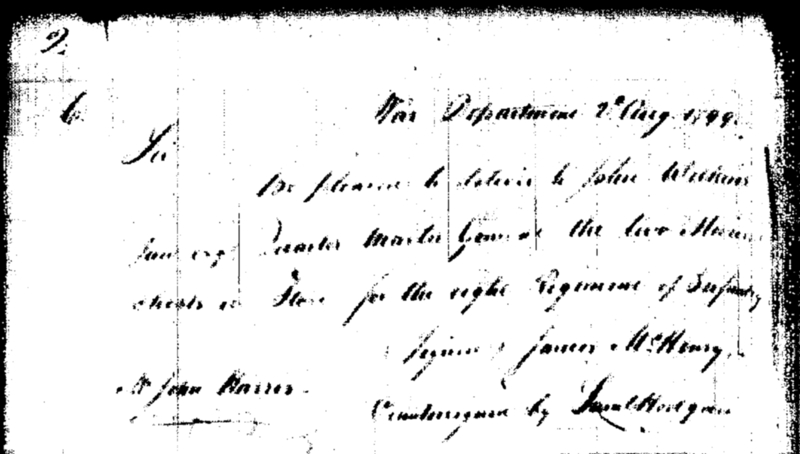 2.
6
War Department 2d Aug 1799.
Sir
Be pleased to deliver to John Wilkins
Junr esqr Quarter Master General the two
chests in Store for the eight Regiment of Infantry
signed James McHenry.
Mr John Harris
Countersigned by Saml Hodgdon